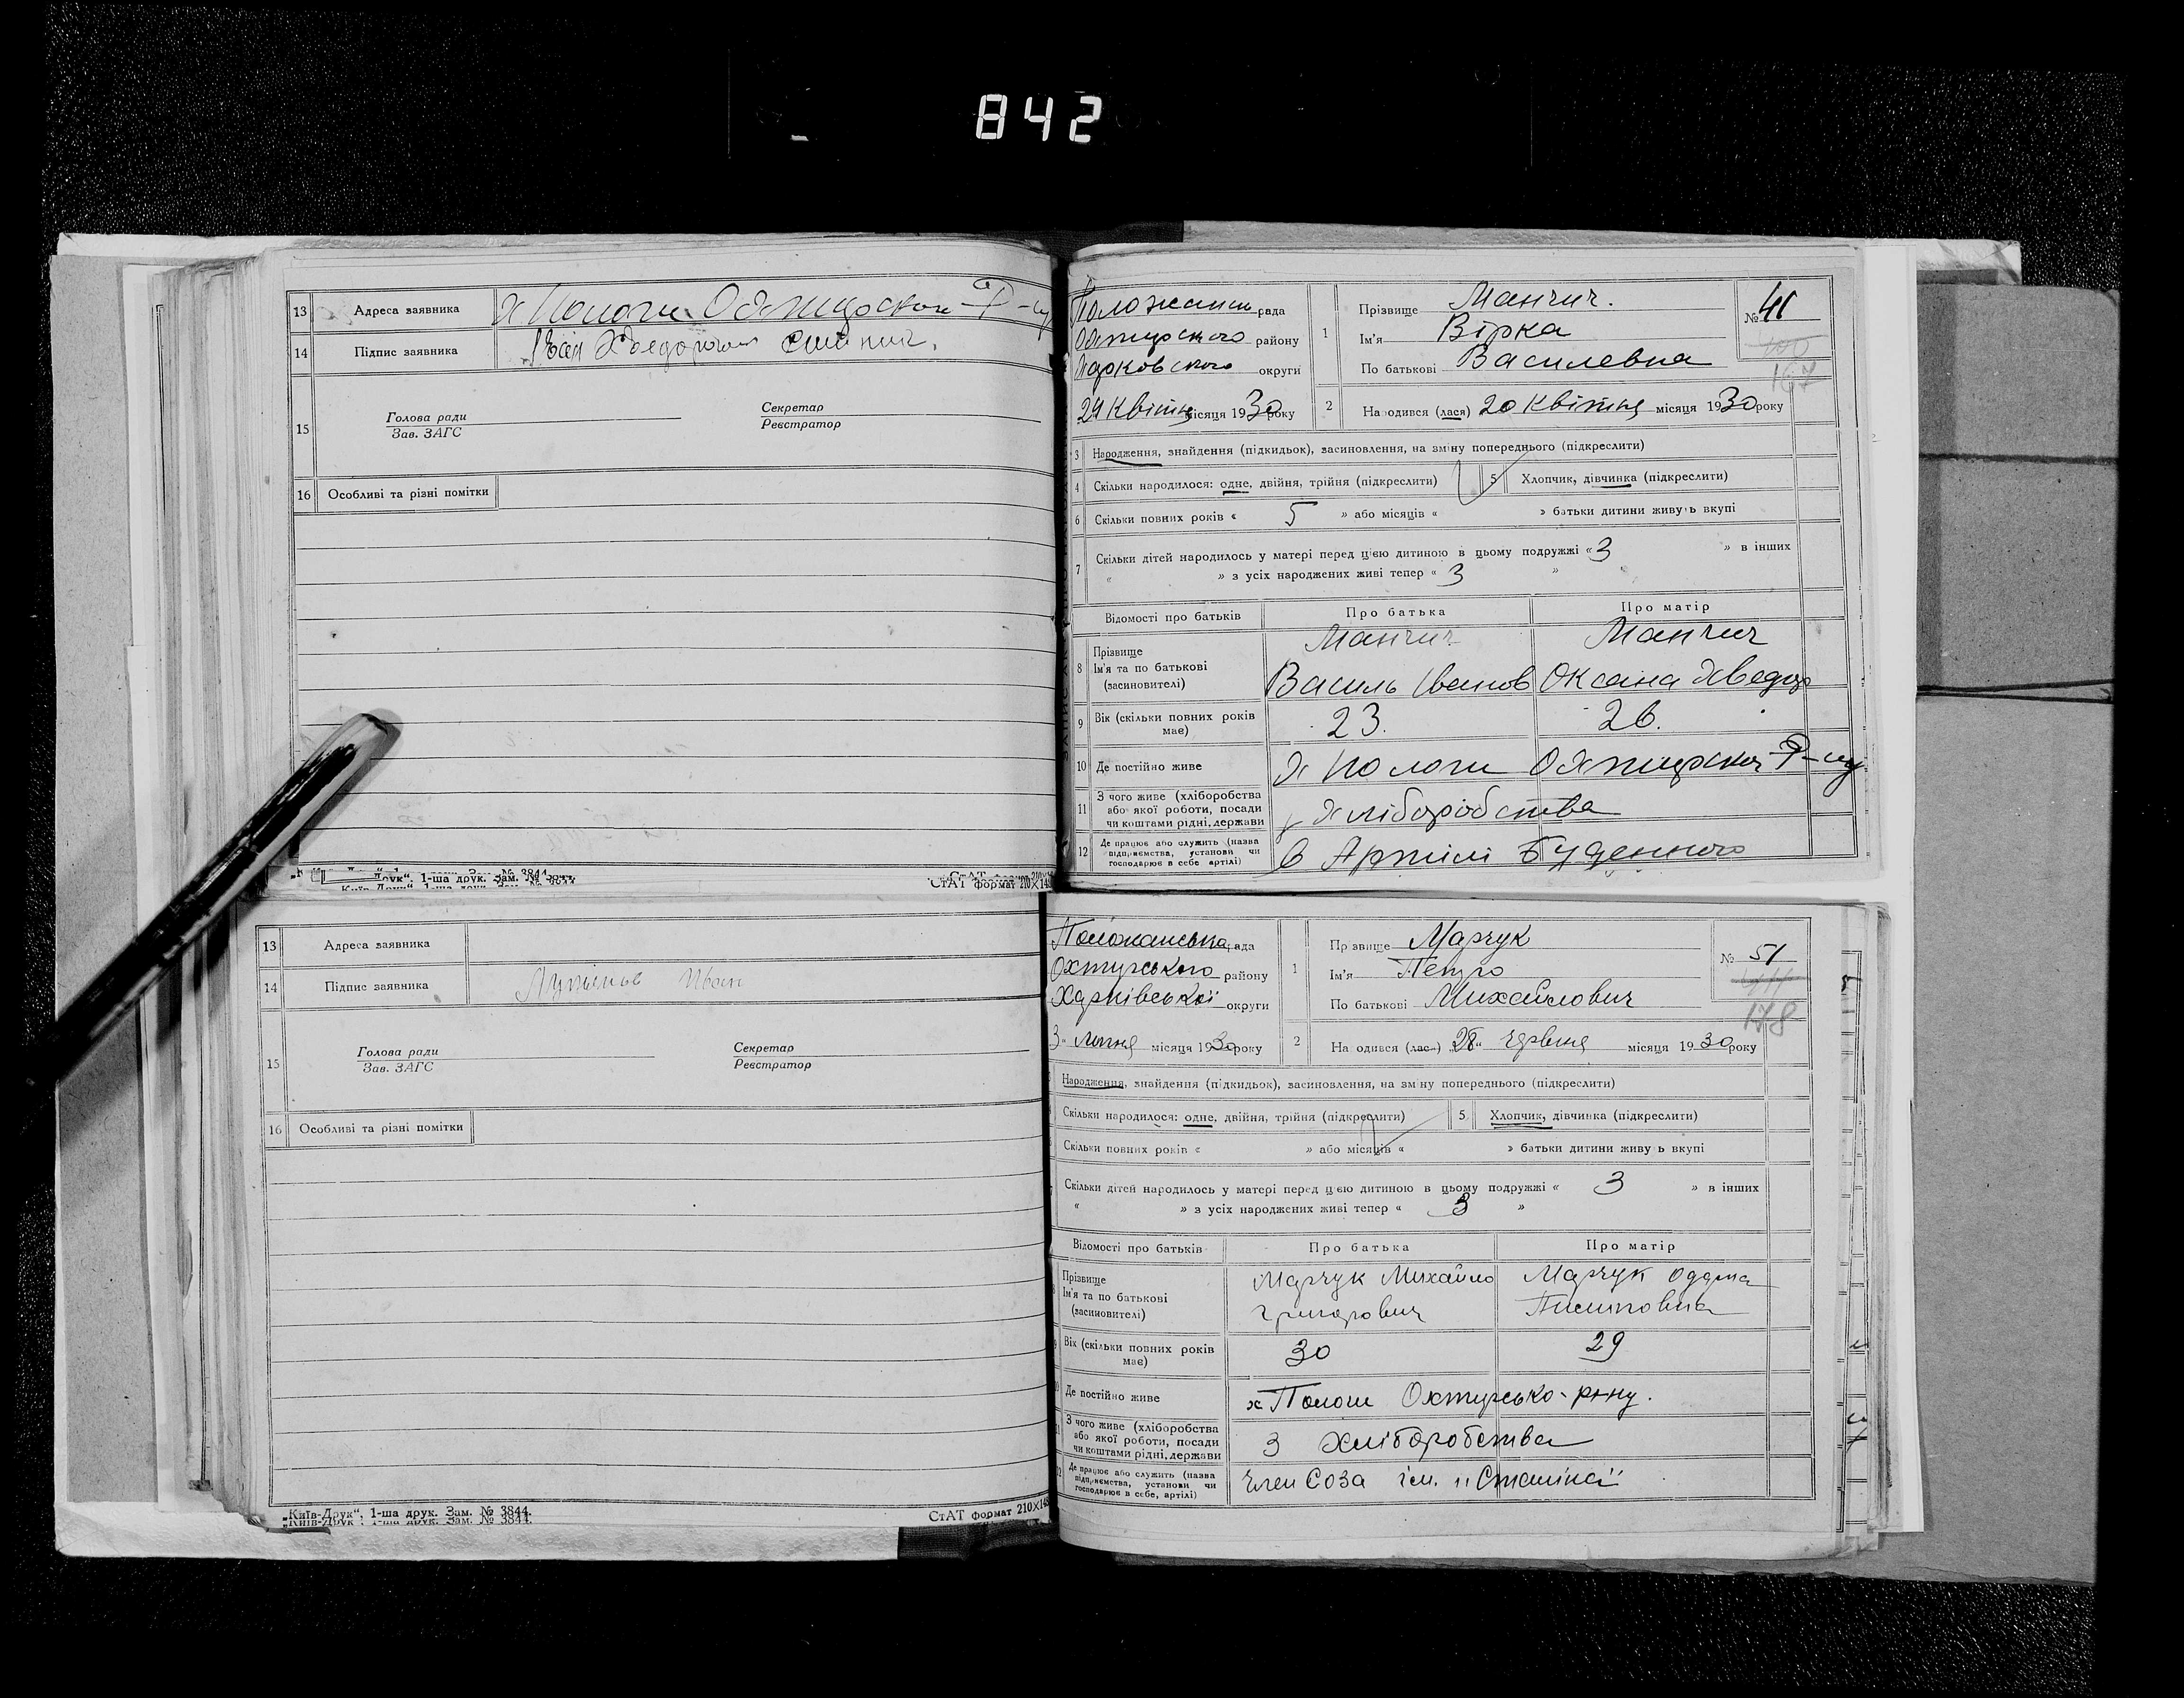 842
13 Адреса заявника х Пологи Охтирском Р-ну
14 Підпис заявника
15 Голова ради Секретар
Зав. ЗАГС Реєстратор
16 Особливі та різні помітки
Друк“, 1-ша друк. Зам. № 3844.
СтАТ формат 210×148
рада
Охтирского району
Харковского округи
29 Квітня місяця 1930 року
1 Прізвище Манчич.
Ім'я Вірка
По батькові Василевна
№ 41
167
2 Народився (лася) 20 Квітня місяця 1930 року
3 Народження, знайдення (підкидьок), засиновлення, на зміну попереднього (підкреслити)
4 Скільки народилося: одне, двійня, трійня (підкреслити) 5 Хлопчик, дівчинка (підкреслити)
6 Скільки повних років « 5 » або місяців « » батьки дитини живуть вкупі
7 Скільки дітей народилось у матері перед цією дитиною в цьому подружжі « 3 » в інших
« » з усіх народжених живі тепер « 3 »
Відомості про батьків Про батька Про матір
8 Прізвище Манчич Манчич
Ім'я та по батькові
(засиновителі) Василь Іванов Оксана Хведор
9 Вік (скільки повних років має) 23. 26.
10 Де постійно живе х Пологи Охтирском Р-ну
11 З чого живе (хліборобства
або якої роботи, посади
чи коштами рідні, держави Хліборобства
12 Де працює або служить (назва
підприємства, установи чи
господарює в себе артілі) в Артілі Буденного
13 Адреса заявника
14 Підпис заявника Іван
15 Голова ради Секретар
Зав. ЗАГС Реєстратор
16 Особливі та різні помітки
„Київ-Друк“, 1-ша друк. Зам. № 3844.
СтАТ формат 210×148
рада
Охтирського району
Харківської округи
3 липня місяця 1930 року
1 Прізвище Марчук
Ім'я Петро
По батькові Михайлович
№ 51
178
2 Народився (лася) 28 червня місяця 1930 року
Народження, знайдення (підкидьок), засиновлення, на зміну попереднього (підкреслити)
Скільки народилося: одне, двійня, трійня (підкреслити) 5 Хлопчик, дівчинка (підкреслити)
Скільки повних років « » або місяців « » батьки дитини живуть вкупі
Скільки дітей народилось у матері перед цією дитиною в цьому подружжі « 3 » в інших
« » з усіх народжених живі тепер « 3 »
Відомості про батьків Про батька Про матір
Прізвище Марчук Михайло Марчук
Ім'я та по батькові
(засиновителі) Григорович
Вік (скільки повних років має) 30 29
Де постійно живе х Пологи Охтирсько р-ну.
З чого живе (хліборобства
або якої роботи, посади
чи коштами рідні, держави З хліборобства
Де працює або служить (назва
підприємства, установи чи
господарює в себе, артілі) Член Соза ім. „Сталіна“